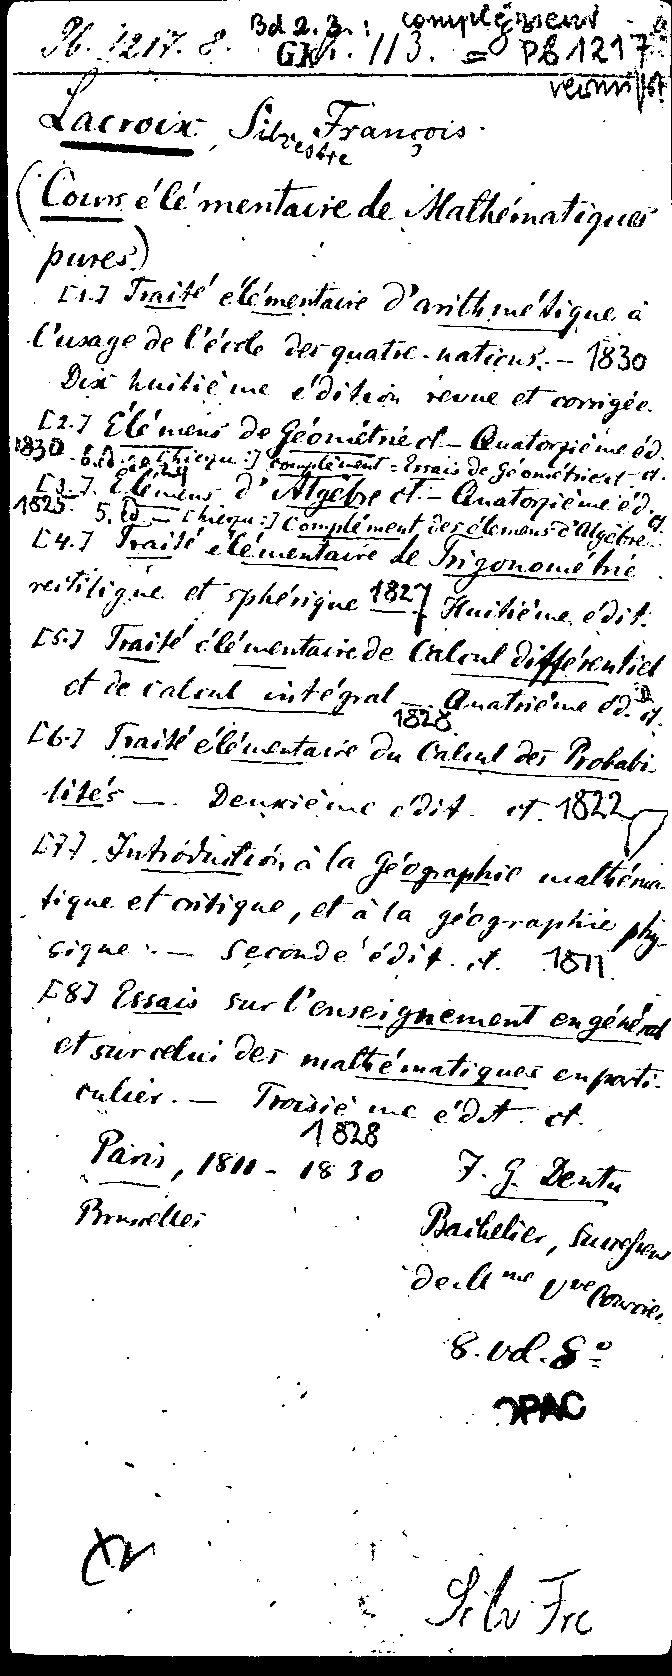 Pb. 1217. 8. Bd 2. 3.: complément
GKr. 113. = PB 1217
vermißt
Lacroix, Silvestre François.
(Cours élémentaire de Mathématiques
pures)
[1.] Traité élémentaire d'arithmétique à
l'usage de l'école des quatre-nations. — 1830
Dix huitième édition revue et corrigée.
[2.] Élémens de Géométrie ct — Quatorzième éd.
1830 - 6. Ed. [hiezu:] complément = Essais de Géométrie ct. ct.
[3.] Élémens d'Algèbre ct. — Quatorzième éd. ct
1825. 5. Ed — [hiezu:] Complément des élemens d'Algèbre
[4.] Traité élémentaire de Trigonométrie
rectiligne et sphérique 1827 Huitième édit.
[5.] Traité élémentaire de Calcul différentiel
et de calcul intégral — Quatrième éd. ct.
1828
[6.] Traité élémentaire du Calcul des Probabi
lités — Deuxième édit. ct. 1822
[7.] Introduction à la géographie mathéma
tique et critique, et à la géographie phy-
sique. — Seconde édit. ct. 1811
[8] Essais sur l'enseignement en général
et sur celui des mathématiques en parti-
culier. — Troisième édit. ct.
1828
Paris, 1811 - 1830 J. G. Dentu
Bruxelles Bachelier, Successeur
de Mme Vve Courcier
8. vol. 8º
OPAC
Silv Frc